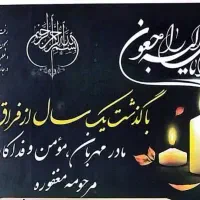 بسم الله الرحمن الرحیم
انا لله و انا الیه راجعون
با گذشت یک سال از فراق
مادر مهربان، مؤمن و فداکا
مرحومه مغفوره